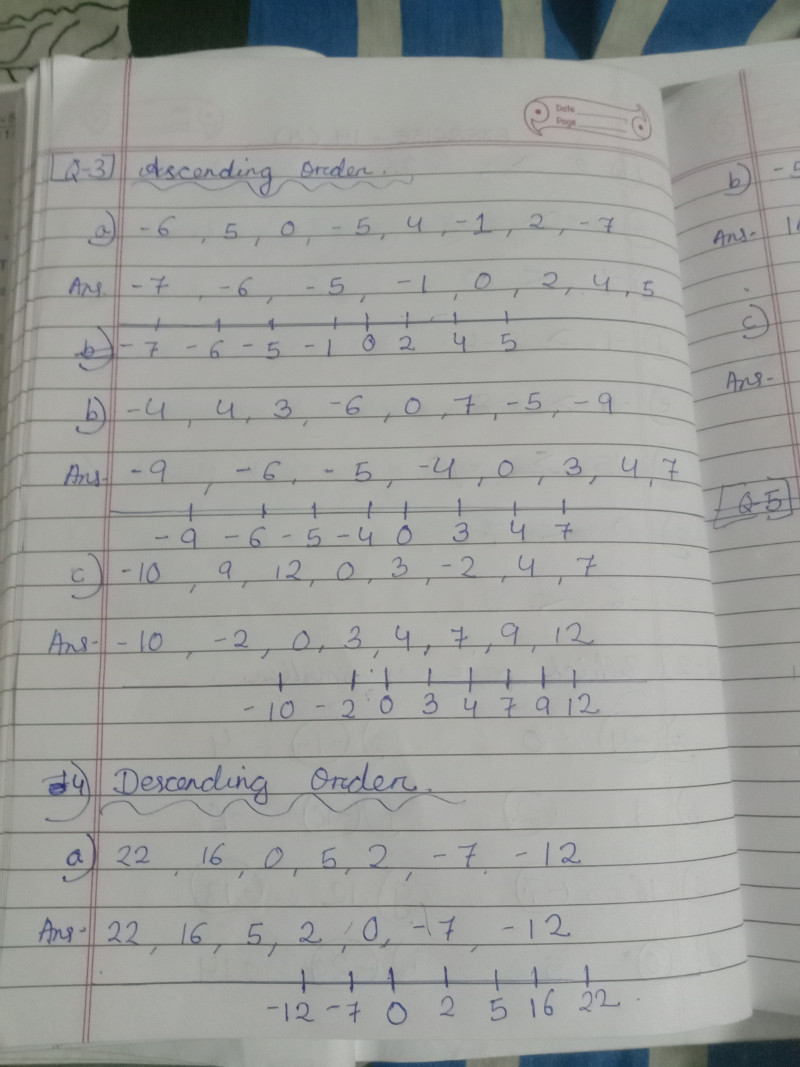 Date
Page
Q-3 Ascending Order.
a) -6 , 5 , 0 , -5 , 4 , -1 , 2 , -7
Ans. -7 , -6 , -5 , -1 , 0 , 2 , 4 , 5
b) -7 -6 -5 -1 0 2 4 5
b) -4 , 4 , 3 , -6 , 0 , 7 , -5 , -9
Ans- -9 , -6 , -5 , -4 , 0 , 3 , 4 , 7
-9 -6 -5 -4 0 3 4 7
c) -10 , 9 , 12 , 0 , 3 , -2 , 4 , 7
Ans- -10 , -2 , 0 , 3 , 4 , 7 , 9 , 12
-10 -2 0 3 4 7 9 12
4) Descending Order.
a) 22 , 16 , 0 , 5 , 2 , -7 , -12
Ans- 22 , 16 , 5 , 2 , 0 , -7 , -12
-12 -7 0 2 5 16 22 .
b) -5
Ans-
c)
Ans-
Q-5